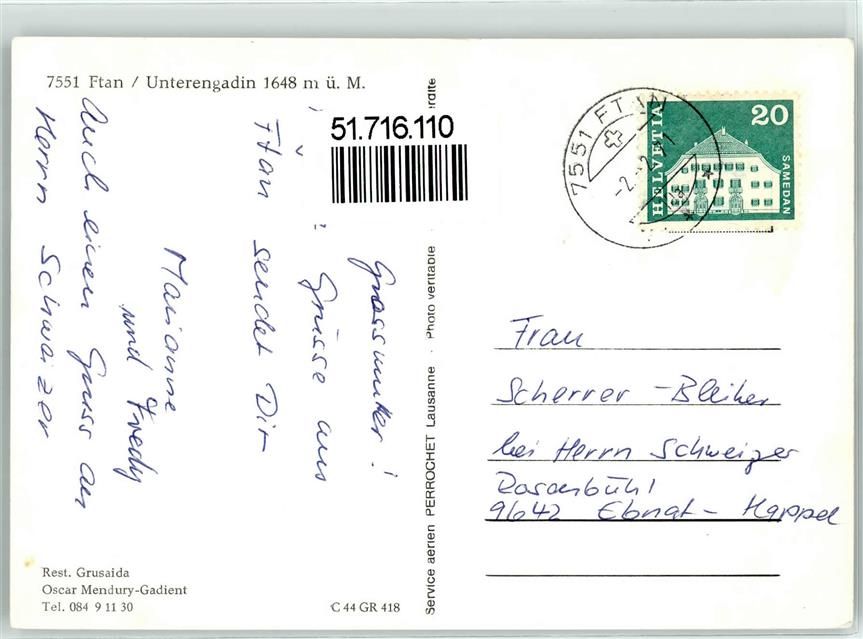 7551 Ftan / Unterengadin 1648 m ü. M.
51.716.110
Grossmutter!
Grüsse aus
Ftan sendet Dir
Marianne
und Fredy
Auch einen Gruss an
Herrn Schwaizer
Rest. Grusaida
Oscar Mendury-Gadient
Tel. 084 9 11 30
C 44 GR 418
Service aerien PERROCHET Lausanne · Photo veritable
7551 FTAN
-2.-2.71
HELVETIA
20
SAMEDAN
Frau
Scherrer - Bleiker
bei Herrn Schweizer
Rosenbühl
9642 Ebnat - Kappel